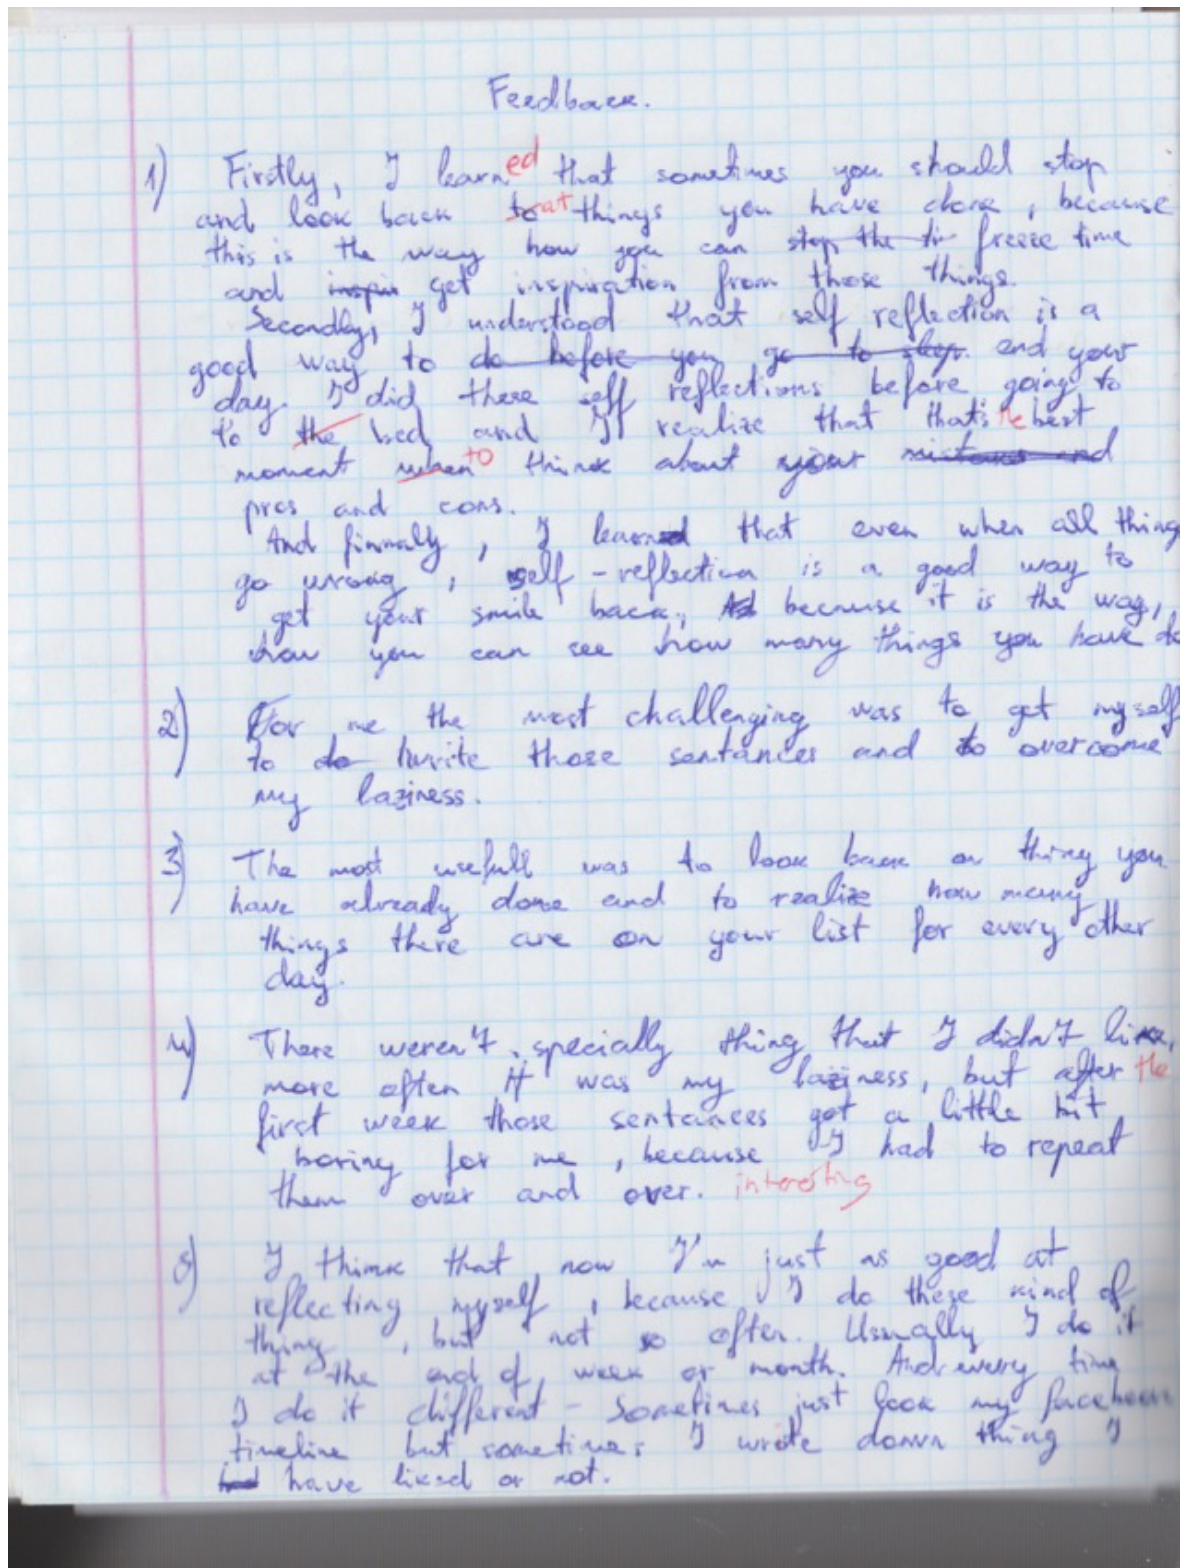 Feedback.
1) Firstly, I learned that sometimes you should stop
and look back to at things you have done, because
this is the way how you can stop the ti freeze time
and inspir get inspiration from those things.
Secondly, I understood that self reflection is a
good way to do before you go to slep. end your
day. I did these self reflections before going to
to the bed and I realize that that's the best
moment when to think about your and
pros and cons.
And finnally, I learned that even when all thing
go wrong, self-reflection is a good way to
get your smile back, because it is the way,
how you can see how many things you have do
2) For me the most challenging was to get myself
to do write those sentances and to overcome
my laziness.
3) The most usefull was to look back on thing you
have already done and to realize how many
things there are on your list for every other
day.
4) There weren't specially thing that I didn't like,
more often it was my laziness, but after the
first week those sentances got a little bit
boring for me, because I had to repeat
them over and over. interesting
5) I think that now I'm just as good at
reflecting myself, because I do these kind of
thing, but not so often. Usually I do it
at the end of week or month. And every time
I do it different - Sometimes just look my facebook
timeline but sometimes I wrote down thing I
have liked or not.